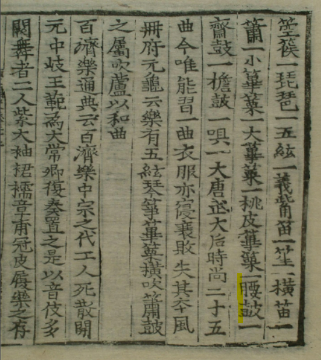 箜篌一琵琶一五絃一義觜笛一笙一橫笛一
簫一小篳篥一大篳篥一桃皮篳篥一腰鼓一
齋鼓一檐鼓一唄一大唐武大后時尚二十五
曲今唯能習一曲衣服亦寖衰敗失其本風
冊府元龜云樂有五絃琴箏篳篥橫吹簫鼓
之屬吹蘆以和曲
百濟樂通典云百濟樂中宗之代工人死散開
元中岐王範爲大常卿復奏置之是以音伎多
闕舞者二人紫大袖裙襦章甫冠皮履樂之存